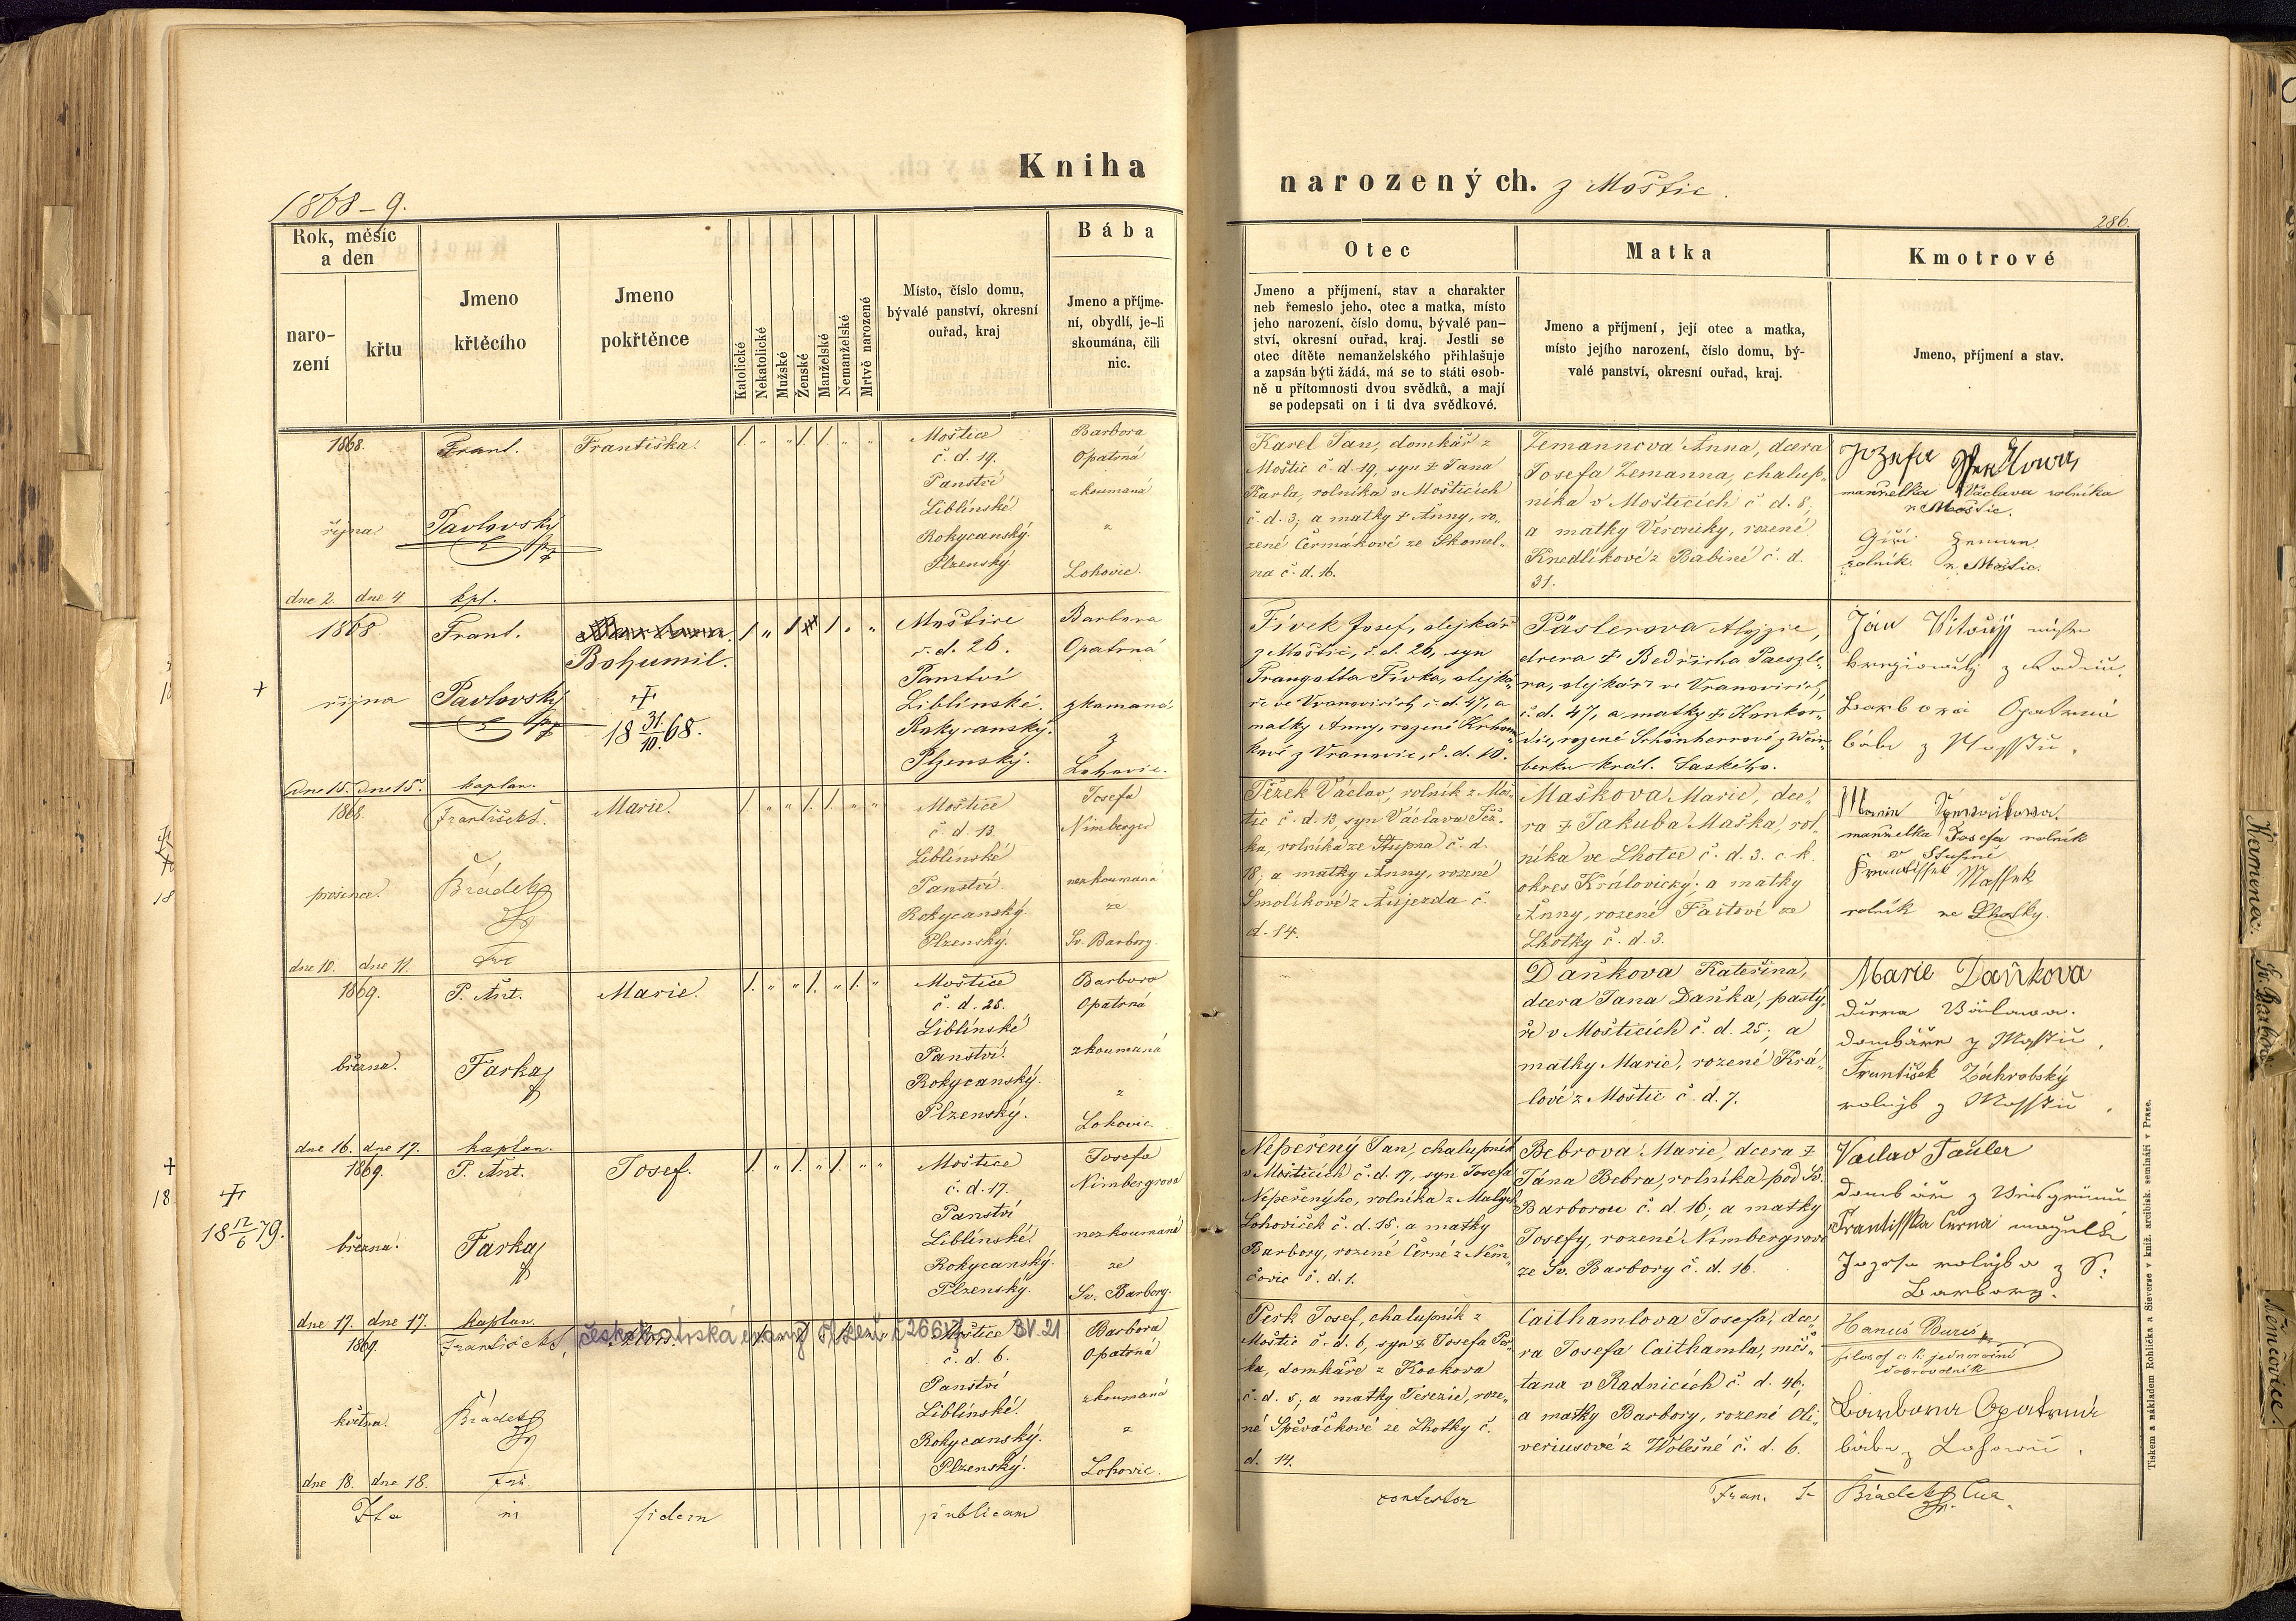 Kniha
narozených. z Moštic.
1868–9.
286.
Rok, měsíc
a den
naro-
zení
křtu
Jmeno
křtěcího
Jmeno
pokřtěnce
Katolické
Nekatolické
Mužské
Ženské
Manželské
Nemanželské
Mrtvě narozené
Místo, číslo domu,
bývalé panství, okresní
ouřad, kraj
Bába
Jmeno a příjme-
ní, obydlí, je-li
skoumána, čili
nic.
Otec
Jmeno a příjmení, stav a charakter
neb řemeslo jeho, otec a matka, místo
jeho narození, číslo domu, bývalé pan-
ství, okresní ouřad, kraj. Jestli se
otec dítěte nemanželského přihlašuje
a zapsán býti žádá, má se to státi osob-
ně u přítomnosti dvou svědků, a mají
se podepsati on i ti dva svědkové.
Matka
Jmeno a příjmení, její otec a matka,
místo jejího narození, číslo domu, bý-
valé panství, okresní ouřad, kraj.
Kmotrové
Jmeno, příjmení a stav.
1868.
října
dne 2. dne 4.
Frant.
Pavlovský
kpl.
Františka.
1. „ „ 1. 1. „ „
Moštice
č. d. 19.
Panství
Liblínské
Rokycanský.
Plzenský.
Barbora
Opatrná
zkoumaná
z
Lohovic.
Karel Jan, domkář z
Moštic č. d. 19, syn ✝ Jana
Karla, rolníka v Mošticích
č. d. 3; a matky ✝ Anny, ro-
zené Čermákové ze Skomel-
na č. d. 16.
Zemannova Anna, dcera
Josefa Zemanna, chalup-
níka v Mošticích č. d. 8,
a matky Veroniky, rozené
Knedlíkové z Babiné č. d.
31.
Jozefa
manželka Václava rolníka
z Moštic.
Giří Zeman
rolník z Moštic.
1868.
října
dne 15. dne 15.
Frant.
Pavlovský
kaplan.
Bohumil.
✝
18 31/10. 68.
1 „ 1 1. „ „
Moštice
č. d. 26.
Panství
Liblínské.
Rokycanský.
Plzenský.
Barbora
Opatrná
zkoumaná
z
Lohovic.
Fivek Josef, olejkář
z Moštic, č. d. 26, syn
Traugotta Fivka, olejká-
ře ve Vranovicích č. d. 47, a
matky Anny, rozené
z Vranovic, č. d. 10.
Päslerova Aloysie,
dcera ✝ Bedřicha Paeszle-
ra, olejkáře ve Vranovicích,
č. d. 47, a matky ✝ Konkor-
die, rozené Schönherrové z Wein-
berku král. Saského.
Jan
z
Barbora Opatrná
bába z
1868.
prosince.
dne 10. dne 11.
František S.
Brádek
Marie.
1. „ „ 1. 1. „ „
Moštice
č. d. 13.
Liblínské
Panství.
Rokycanský.
Plzenský.
Josefa
Nimberger
nezkoumaná
ze
Sv. Barbory.
Ježek Václav, rolník z Moš-
tic č. d. 13, syn Václava Jež-
ka, rolníka ze Stupna č. d.
18; a matky Anny, rozené
Smolíkové z Aujezda č.
d. 14.
Maškova Marie, dce-
ra ✝ Jakuba Maška, rol-
níka ve Lhotce č. d. 3. c. k.
okres Královický; a matky
Anny, rozené Faitové ze
Lhotky č. d. 3.
manželka Josefa rolník
v Stupné
Frantissek Massek
rolník ze Lhotky.
1869.
března.
dne 16. dne 17.
P. Ant.
Farka
kaplan.
Marie.
1. „ „ 1. „ 1. „
Moštice
č. d. 25.
Liblínské
Panství.
Rokycanský.
Plzenský.
Barbora
Opatrná
zkoumaná
z
Lohovic.
Daňkova Kateřina,
dcera Jana Daňka, pastý-
ře v Mošticích č. d. 25; a
matky Marie, rozené Krá-
lové z Moštic č. d. 7.
Marie Daňkova
dcera Václava
domkáře z
František Záhrobský
1869.
března.
dne 17. dne 17.
P. Ant.
Farka
kaplan.
Josef.
1. „ 1. „ 1. „ „
✝
18 12/6 79.
Moštice
č. d. 17.
Panství
Liblínské.
Rokycanský.
Plzenský.
Josefa
Nimbergrova
nezkoumaná
ze
Sv. Barbory.
Nepeřený Jan, chalupník
v Mošticích č. d. 17, syn Josefa
Nepeřenýho, rolníka z Malých
Lohoviček č. d. 15; a matky
Barbory, rozené Černé z Něm-
čovic č. d. 1.
Bebrova Marie, dcera ✝
Jána Bebra, rolníka pod Sv.
Barborou č. d. 16; a matky
Josefy, rozené Nimbergrové
ze Sv. Barbory č. d. 16.
Vaclav Tauler
domkář z
Frantisska Černa
z S.
Barbory.
1869.
května.
dne 18. dne 18.
František S.
Brádek
Moštice
č. d. 6.
Panství
Liblínské.
Rokycanský.
Plzenský.
Barbora
Opatrná
zkoumaná
z
Lohovic.
Perk Josef, chalupník z
Moštic č. d. 6, syn ✝ Josefa Per-
ka, domkáře z Kockova
č. d. 5; a matky Terezie, roze-
né Spěváčkové ze Lhotky č.
d. 14.
Caithamlova Josefa, dce-
ra Josefa Caithamla, měš-
tana v Radnicích č. d. 46;
a matky Barbory, rozené Oli-
veriusové z Wolešné č. d. 6.
Hanuš Bureš
filosof c. k. jednoroční
dobrovolník
Barbora Opatrná
bába z
Ita in fidem publicam
contestor Fran. S. Brádek Cur.
Tiskem a nákladem Rohlíčka a Sieverse v kníž. arcibisk. semináři v Praze.
Kamenec.
Sv. Barbora
Němčovice